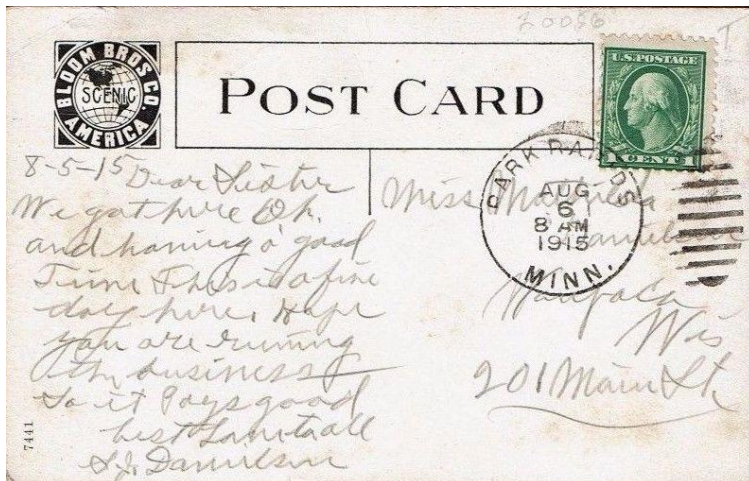 20056
BLOOM BROS. CO.
SCENIC
AMERICA
POST CARD
U.S. POSTAGE
1 CENT 1
PARK RAPIDS
AUG
6
8 AM
1915
MINN.
8-5-15 Dear Sister
We got here Ok.
and having a good
Time This is a fine
day here. Hope
you are running
the business
So it Pays good
best
S.J. Danielson
Miss
Danielson
Waupaca
Wis
201 Main St
7441